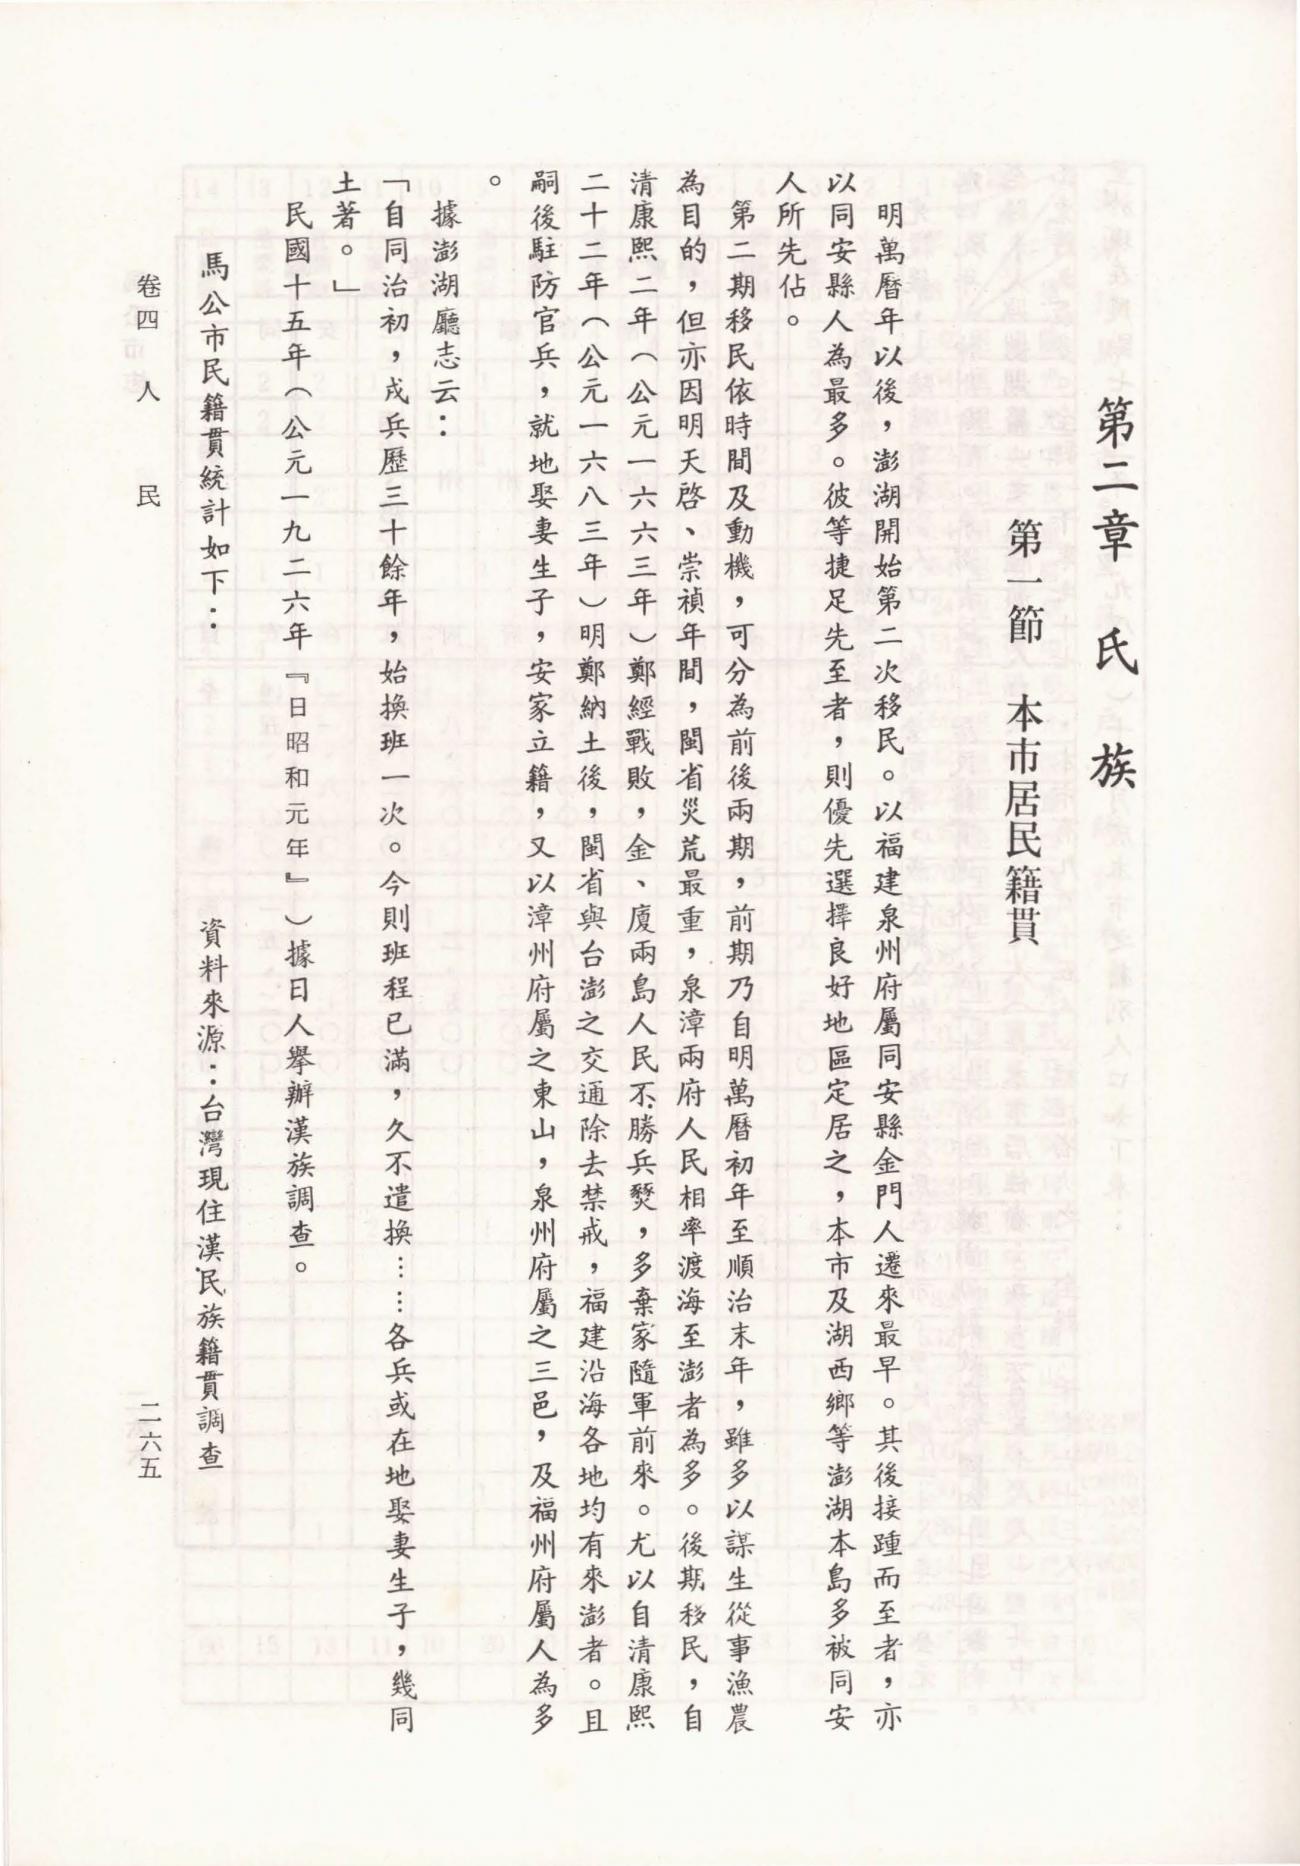 第二章　氏　族
第一節　本市居民籍貫
明萬曆年以後，澎湖開始第二次移民。以福建泉州府屬同安縣金門人遷來最早。其後接踵而至者，亦
以同安縣人為最多。彼等捷足先至者，則優先選擇良好地區定居之，本市及湖西鄉等澎湖本島多被同安
人所先佔。
第二期移民依時間及動機，可分為前後兩期，前期乃自明萬曆初年至順治末年，雖多以謀生從事漁農
為目的，但亦因明天啓、崇禎年間，閩省災荒最重，泉漳兩府人民相率渡海至澎者為多。後期移民，自
清康熙二年（公元一六六三年）鄭經戰敗，金、廈兩島人民不勝兵燹，多棄家隨軍前來。尤以自清康熙
二十二年（公元一六八三年）明鄭納土後，閩省與台澎之交通除去禁戒，福建沿海各地均有來澎者。且
嗣後駐防官兵，就地娶妻生子，安家立籍，又以漳州府屬之東山，泉州府屬之三邑，及福州府屬人為多
。
據澎湖廳志云：
「自同治初，戍兵歷三十餘年，始換班一次。今則班程已滿，久不遣換……各兵或在地娶妻生子，幾同
土著。」
民國十五年（公元一九二六年『日昭和元年』）據日人舉辦漢族調查。
馬公市民籍貫統計如下：　資料來源：台灣現住漢民族籍貫調查
卷四　人　民　二六五